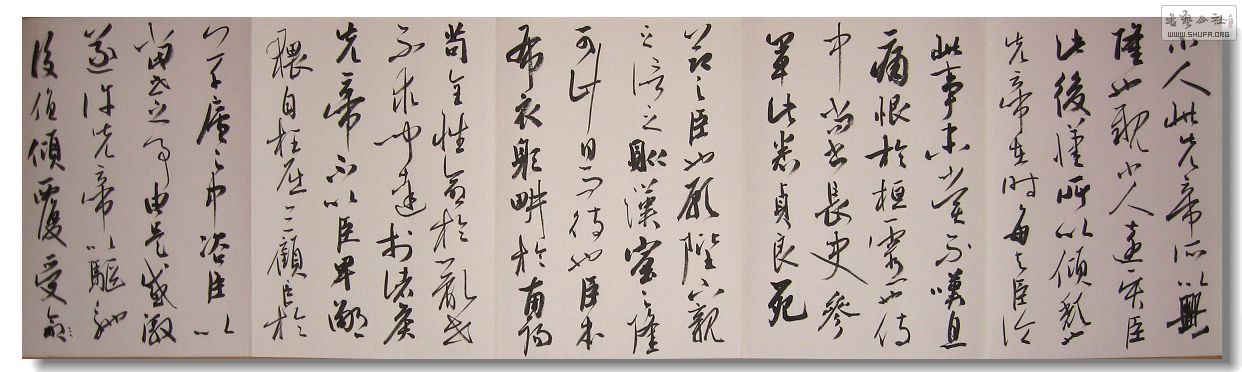 小人此先帝所以興
隆也親小人遠賢臣
此後漢所以傾頹也
先帝在時每與臣論
此事未嘗不嘆息
痛恨於桓靈也侍
中尚書長史參
軍此悉貞良死
節之臣也願陛下親
之信之則漢室之隆
可計日而待也臣本
布衣躬畊於南陽
苟全性命於亂世
不求聞達於諸侯
先帝不以臣卑鄙
猥自枉屈三顧臣於
草廬之中咨臣以
當世之事由是感激
遂許先帝以驅馳
後值傾覆受命
書藝公社
WWW.SHUFA.ORG